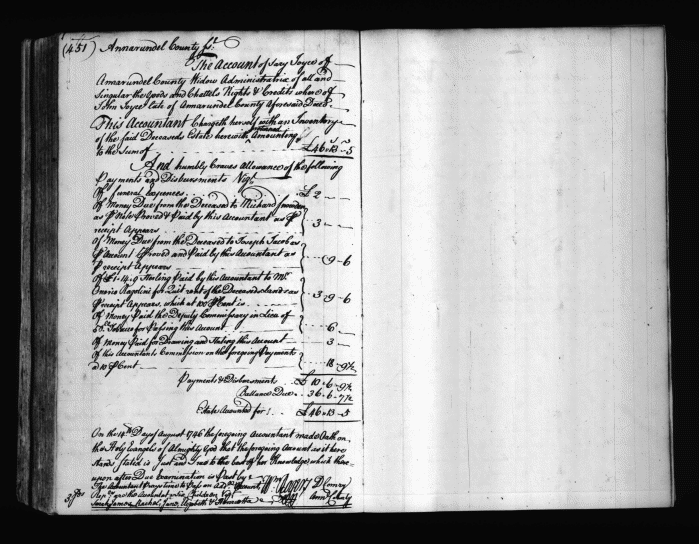 (451) Annarundel County Ss.
The Account of Mary Joyce of
Annarundel County Widow Administratrix of all and
Singular the Goods and Chattels Rights & Credits whereof
John Joyce late of Annarundel County aforesaid Dec'd
This Accountant Chargeth herself with an Inventory
of the said Deceased's Estate herewith Amounting
to the sum of £46..13..5
And humbly Craves Allowance of the following
Payments and Disbursments Vizt.
Of funeral expences £2
Of Money Due from the Deceased to Richard
as p Note Proved & Paid by this Accountant as p
receipt Appears 3
Of Money Due from the Deceased to Joseph Jacob as
p Account Approved and Paid by this Accountant as
p receipt Appears 9-6
Of £1-14-9 Sterling Paid by this Accountant to Mr.
Onorio Razolini for Quit rent of the Deceaseds Land as
p receipt Appears, which at 100 p Cent is 3-9-6
Of Money Paid the Deputy Commissary in Lieu of
Tobacco for Passing this Account 6
Of Money Paid for Drawing and Stating this Account 3
Of this Accountants Commission on the foregoing Payments
a 10 p Cent 18-9½
Payments & Disbursments £10-6-9½
Ballance Due 36-6-7½
Estate Accounted for £46-13-5
On the 14th Day of August 1746 the foregoing Accountant made Oath on
the Holy Evangels of Almighty God that the foregoing Account as it here
stands stated is Just and True to the best of her Knowledge which there
upon after Due Examination is Past by
The Accountant Prays time to Pass an Add. Account
D Comry
Children Vizt.
Ann County
Sarah James Rachel, Jane, Elizabeth & Henrietta